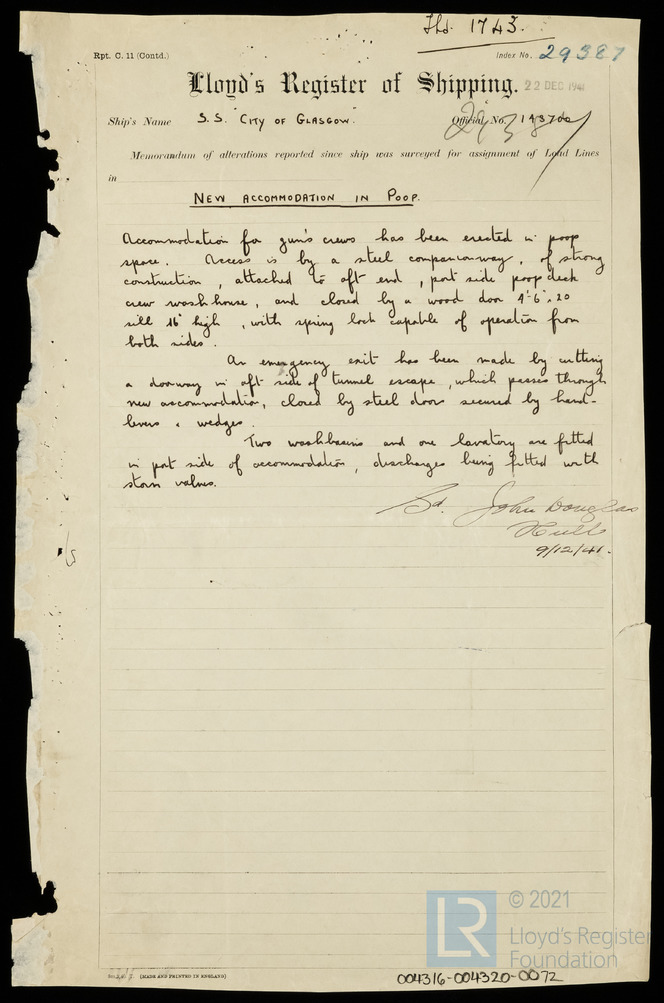 Fhd. 1743.
Rpt. C. 11 (Contd.)
Index No. 29387
Lloyd's Register of Shipping.
22 DEC 1941
Ship's Name S.S. "CITY OF GLASGOW".
Official No.
Memorandum of alterations reported since ship was surveyed for assignment of Load Lines
in
NEW ACCOMMODATION IN POOP.
Accommodation for gun's crews has been erected in poop
space. Access is by a steel companionway, of strong
construction, attached to aft end, port side poop deck
crew wash house, and closed by a wood door 4'6" x 20
sill 16" high, with spring lock capable of operation from
both sides.
An emergency exit has been made by cutting
a doorway in aft side of tunnel escape, which passes through
new accommodation, closed by steel door secured by hand-
levers & wedges.
Two washbasins and one lavatory are fitted
in port side of accommodation, discharges being fitted with
storm valves.
Sd. John Douglas
Hull
9/12/41.
(MADE AND PRINTED IN ENGLAND)
004316-004320-0072
LR
© 2021
Lloyd's Register
Foundation